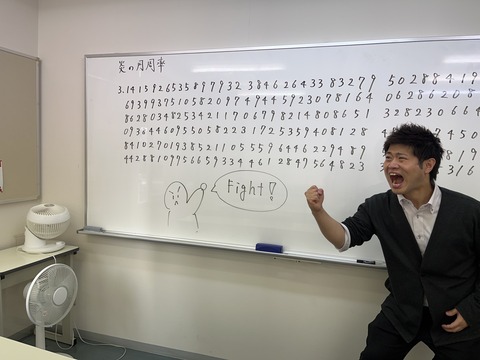 炎の円周率
3.141592653589793238462643383279 50288419
69399375105820974944592307 8164 06286208
86280348253421170679821480 8651 32823066 4
09384460955058223172535940 8128 450
8410270193852110555964462294 89 819
4428810975665933446128475648 23 316
Fight!